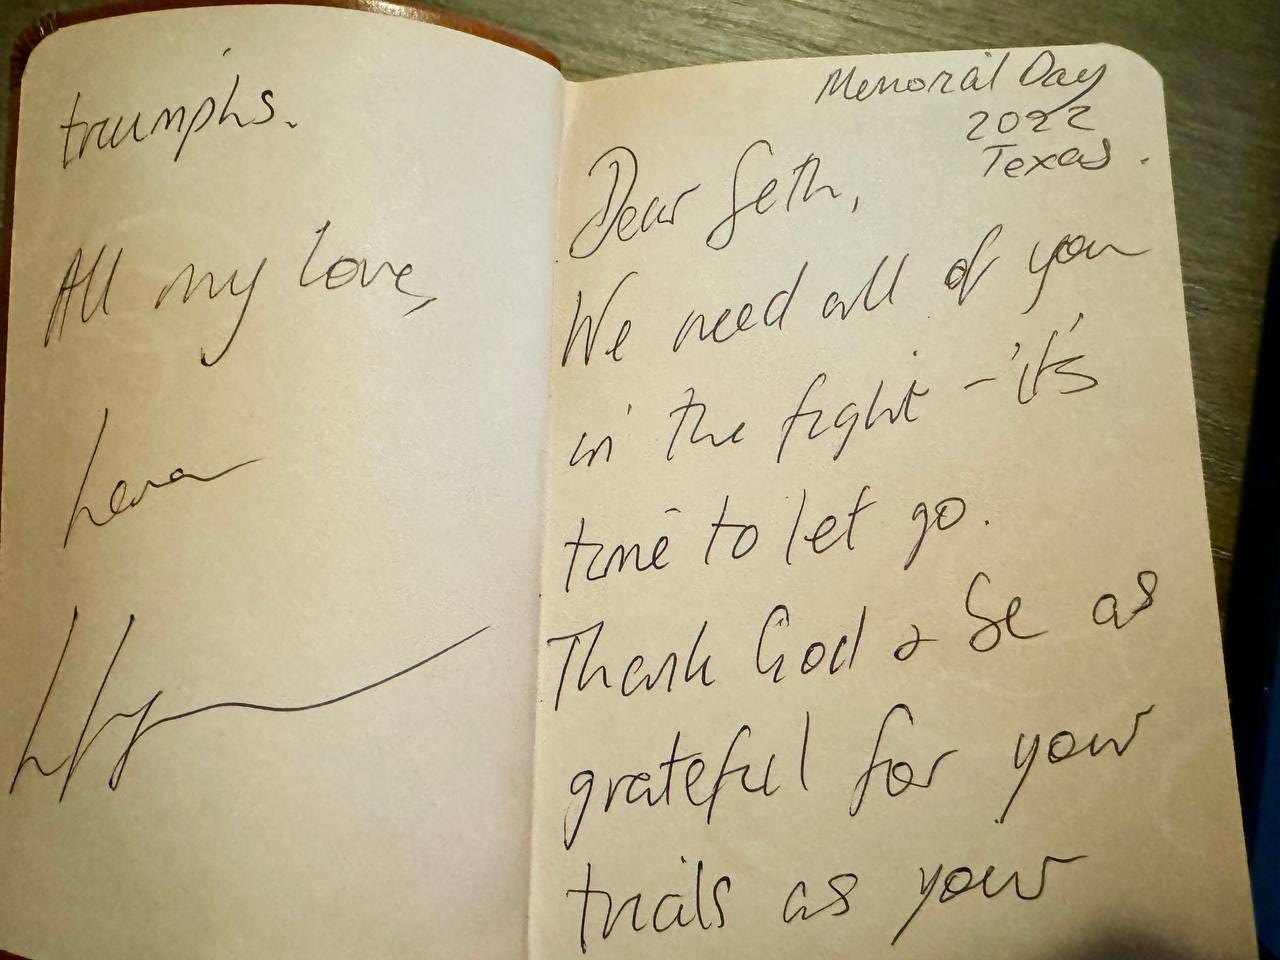 Memorial Day
2022
Texas.
Dear Seth,
We need all of you
in the fight - it's
time to let go.
Thank God & be as
grateful for your
trials as your
triumphs.
All my love,